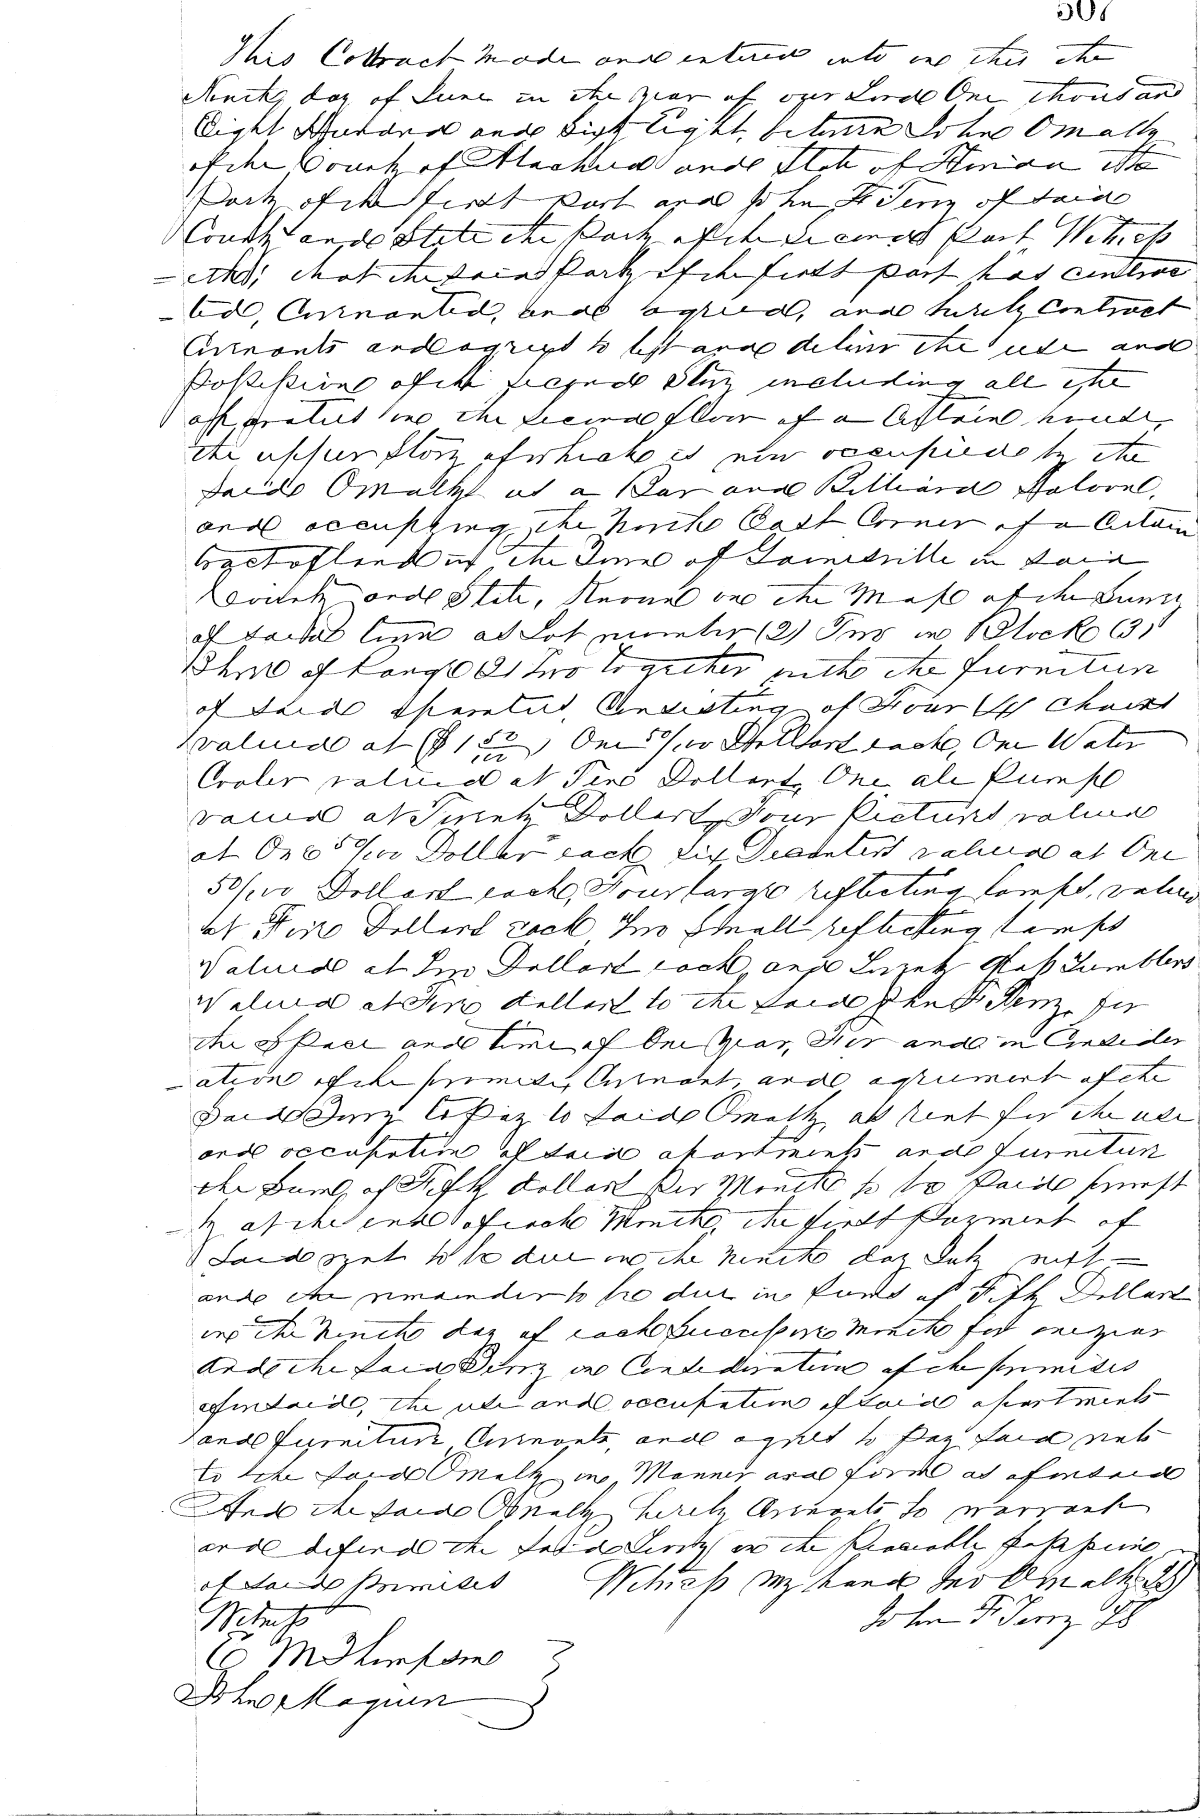 507
This Contract made and entered into on this the
Ninth day of June in the year of our Lord One thousand
Eight Hundred and Sixty Eight, between John Omally
of the County of Alachua and State of Florida the
Party of the first part and John F Terry of said
County and State the Party of the second Part, Witness
-eth; that the said Party of the first part has contrac
-ted, Covenanted, and agreed, and hereby Contract
Covenants and agrees to let and deliver the use and
Possession of the second Story including all the
apparatus on the second floor of a Certain house,
the upper story of which is now occupied by the
said Omally as a Bar and Billiard Saloon,
and occupying the North East Corner of a Certain
tract of land in the Town of Gainesville in said
County and State, Known on the Map of the Survey
of said town as Lot number (2) Two in Block (3)
Three of Range (2) Two together with the furniture
of said aparatus, Consisting of Four (4) chairs
valued at ($1 50/100) One 50/100 Dollars each, One Water
Cooler valued at Five Dollars, One ale Pump
valued at Twenty Dollars, Four Pictures valued
at One 50/100 Dollar each, Six Decanters valued at One
50/100 Dollars each, Four large reflecting lamps, valued
at Five Dollars each, Two Small reflecting lamps
Valued at Two Dollars each, and Twenty Glass Tumblers
Valued at Five dollars to the said John F Terry, for
the Space and time of One Year, For and in Consider
-ation of the promises, Covenant, and agreement of the
said Terry to Pay to said Omally, as rent for the use
and occupation of said apartments and furniture
the Sum of Fifty dollars Per Month to be Paid prompt
-ly at the end of each Month, the first Payment of
said rent to be due on the Ninth day July next =
and the remainder to be due in sums of Fifty Dollars
on the Ninth day of each Successive Month for one year
And the said Terry in Consideration of the premises
aforesaid, the use and occupation of said apartments
and furniture, Covenants, and agrees to Pay said rents
to the said Omally in Manner and form as aforesaid
And the said Omally hereby Covenants to warrant
and defend the said Terry in the Peaceable possession
of said Premises Witness my hand Jno Omally LS
John F Terry LS
Witness
E M Thompson
John Maguire